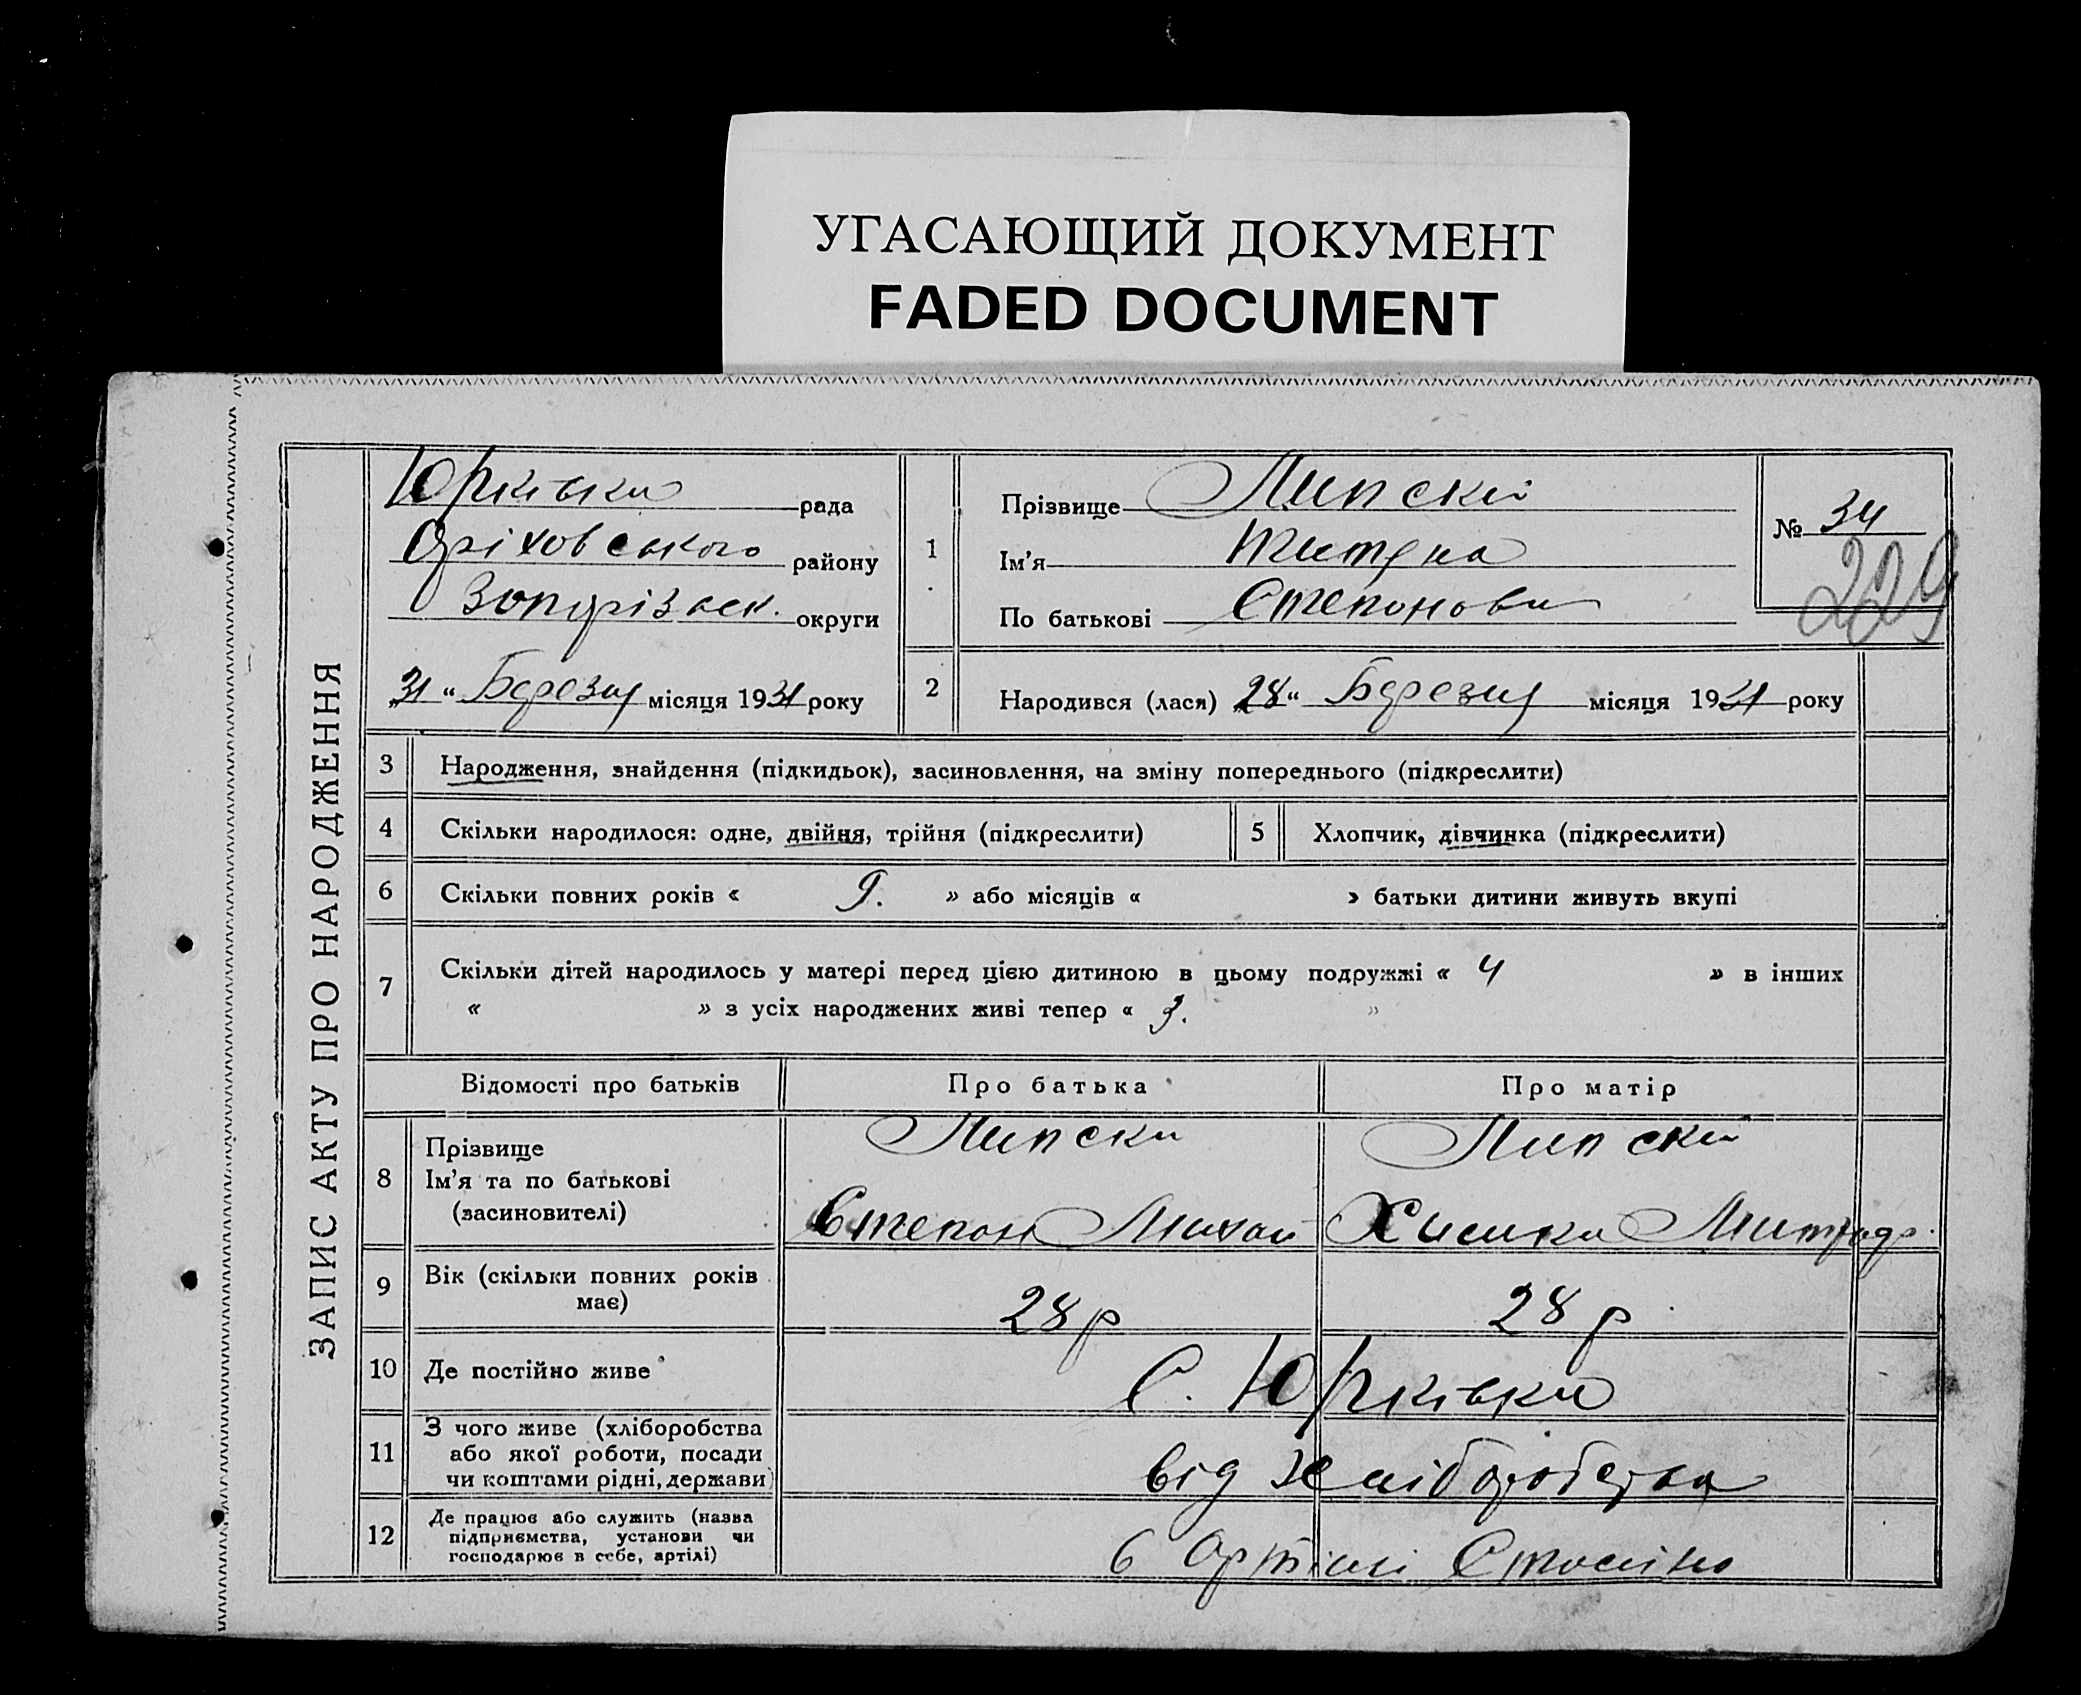 УГАСАЮЩИЙ ДОКУМЕНТ
FADED DOCUMENT
ЗАПИС АКТУ ПРО НАРОДЖЕННЯ
Юрківка рада
Оріховського району
Запоріжськ. округи
„31“ Березня місяця 1931 року
1
Прізвище Липский
Ім'я
По батькові Степоновна
№ 34
229
2 Народився (лася) „28“ Березня місяця 1931 року
3 Народження, знайдення (підкидьок), засиновлення, на зміну попереднього (підкреслити)
4 Скільки народилося: одне, двійня, трійня (підкреслити)
5 Хлопчик, дівчинка (підкреслити)
6 Скільки повних років « 9. » або місяців « » батьки дитини живуть вкупі
7 Скільки дітей народилось у матері перед цією дитиною в цьому подружжі « 4 » в інших
« » з усіх народжених живі тепер « 3. »
Відомості про батьків
Про батька
Про матір
8 Прізвище
Ім'я та по батькові
(засиновителі)
Липски
Степан Михай
Липский
Митрад.
9 Вік (скільки повних років
має)
28 р
28 р
10 Де постійно живе
С. Юрківка
11 З чого живе (хліборобства
або якої роботи, посади
чи коштами рідні, держави)
від хліборобства
12 Де працює або служить (назва
підприємства, установи чи
господарює в себе, артілі)
в Артілі Сталіна